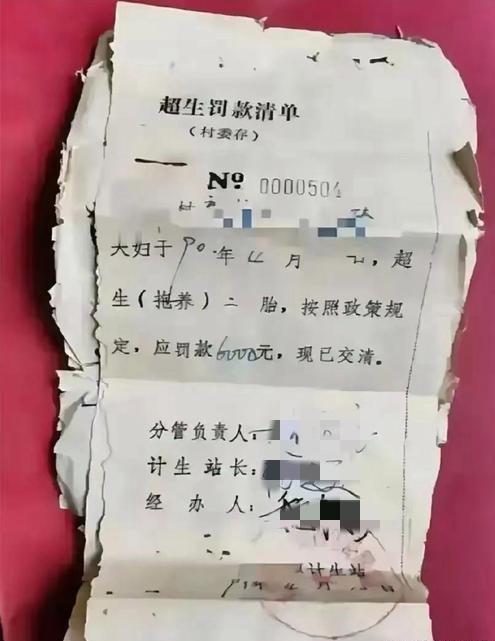 超生罚款清单
(村委存)
No 0000504
夫妇于90年 月 , 超
生(抱养)二 胎, 按照政策规
定, 应罚款6000元, 现已交清。
分管负责人:
计生站长:
经办人:
计生站
年 月 日